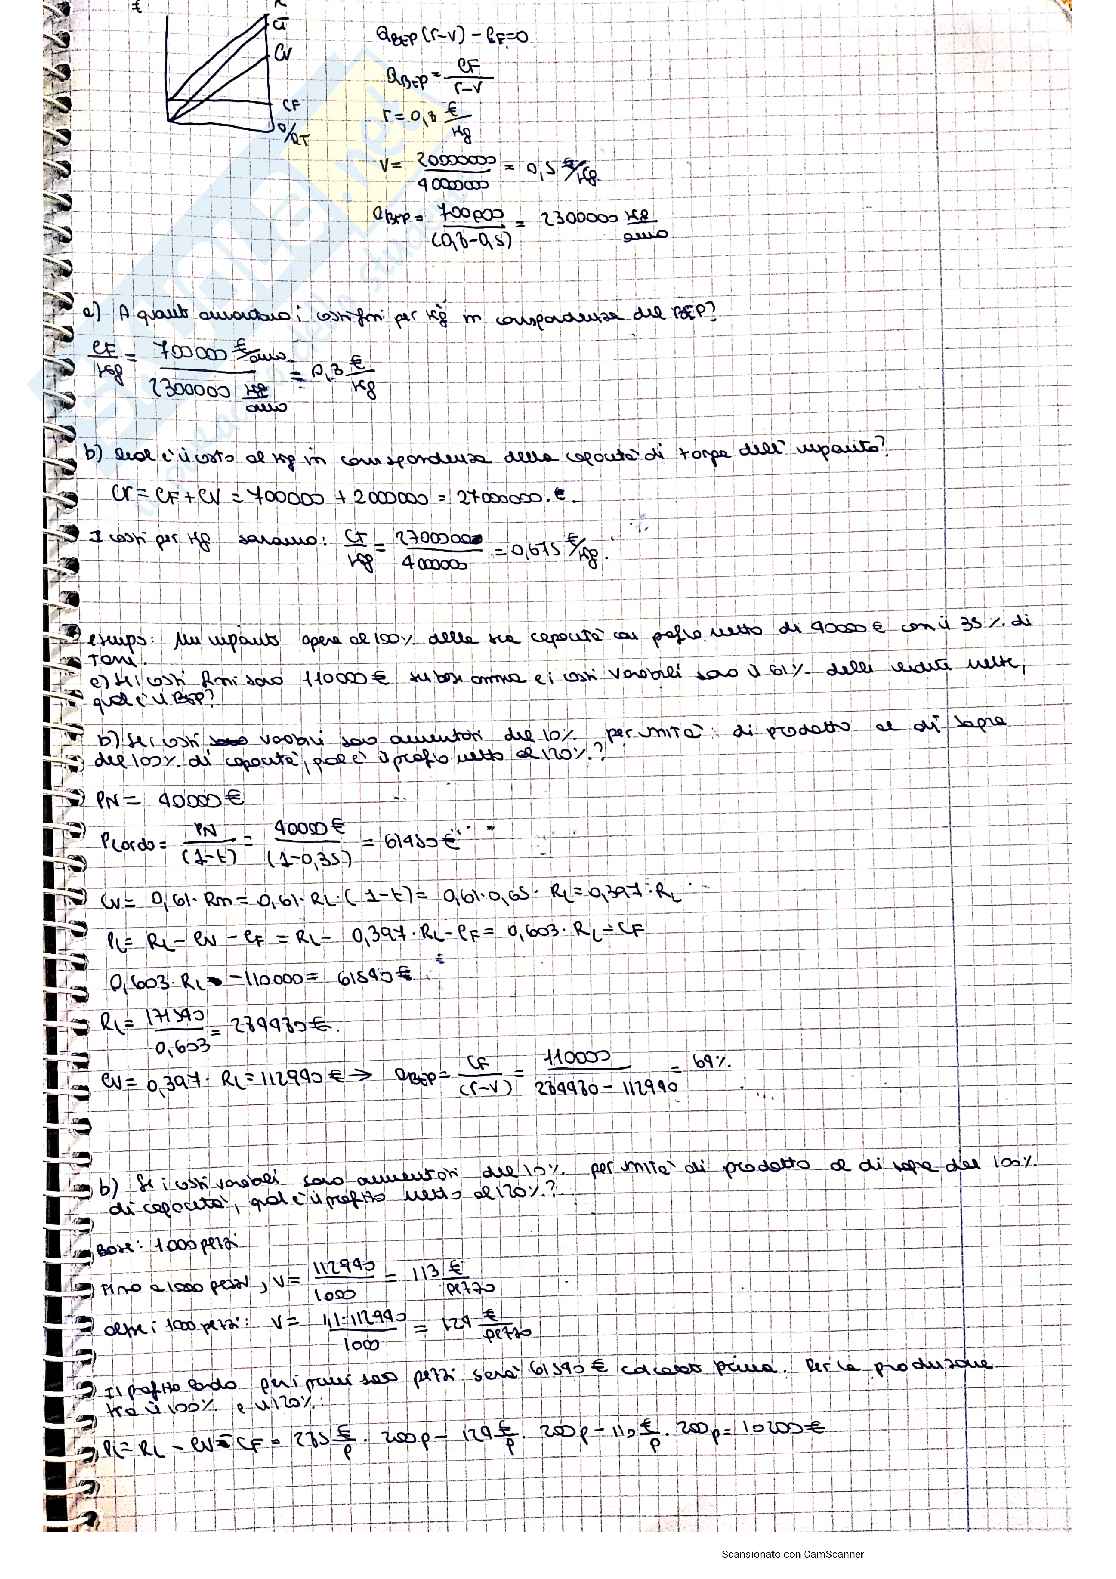 €
CT
CV
CF
Q/QT
Q_BEP (r-v) - CF = 0
Q_BEP = CF/(r-v)
r = 0,8 €/Kg
V = 20000000/4000000 = 0,5 €/Kg
Q_BEP = 700000/(0,8-0,5) = 2300000 Kg/anno
a) A quanto ammontano i costi fissi per Kg in corrispondenza del BEP?
CF/Kg = 700000 €/anno / 2300000 Kg/anno = 0,3 €/Kg
b) Qual è il costo al Kg in corrispondenza della capacità di targa dell'impianto?
CT = CF + CV = 700000 + 2000000 = 27000000 €
I costi per Kg saranno: CT/Kg = 27000000/400000 = 0,675 €/Kg.
esempio: Un impianto opera al 100% della sua capacità con profitto netto di 40000 € con il 35% di
tasse.
a) Se i costi fissi sono 110000 € su base annua e i costi variabili sono il 61% delle vendite nette,
qual è il BEP?
b) Se i costi variabili sono aumentati del 10% per unità di prodotto al di sopra
del 100% di capacità, qual è il profitto netto al 120%?
PN = 40000 €
PLordo = PN/(1-t) = 40000 €/(1-0,35) = 61540 €
CV = 0,61 · Rn = 0,61 · RL · (1-t) = 0,61 · 0,65 · RL = 0,397 · RL
PL = RL - CV - CF = RL - 0,397 · RL - CF = 0,603 · RL - CF
0,603 · RL - 110000 = 61540 €
RL = 171540/0,603 = 284480 €.
CV = 0,397 · RL = 112940 € → Q_BEP = CF/(r-v) = 110000/(284480 - 112940) = 64%
b) Se i costi variabili sono aumentati del 10% per unità di prodotto al di sopra del 100%
di capacità, qual è il profitto netto al 120%?
Base: 1000 pezzi
Fino a 1000 pezzi, v = 112940/1000 = 113 €/pezzo
oltre i 1000 pezzi: v = 1,1·112940/1000 = 124 €/pezzo
Il profitto lordo per i primi pezzi sarà 61540 € calcolato prima. Per la produzione
tra il 100% e il 120%:
PL = RL - CV - CF = 285 €/p · 200p - 124 €/p · 200p - 110 €/p · 200p = 10200 €
Scansionato con CamScanner